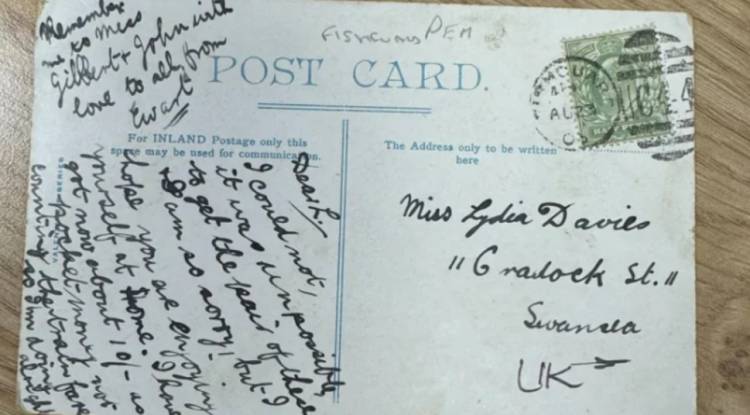 Remember
me to Miss
Gilbert & John with
love to all from
Ewart
FISHGUARD PEM
POST CARD.
For INLAND Postage only this
space may be used for communication.
The Address only to be written
here
Dear L.
I could not,
it was impossible
to get the pair of these
I am so sorry! but I
hope you are enjoying
yourself at home. I have
got now about 10/- as
pocket-money not
counting the train fare
so I'm doing
alright
Miss Lydia Davies
11 Cradock St.
Swansea
UK